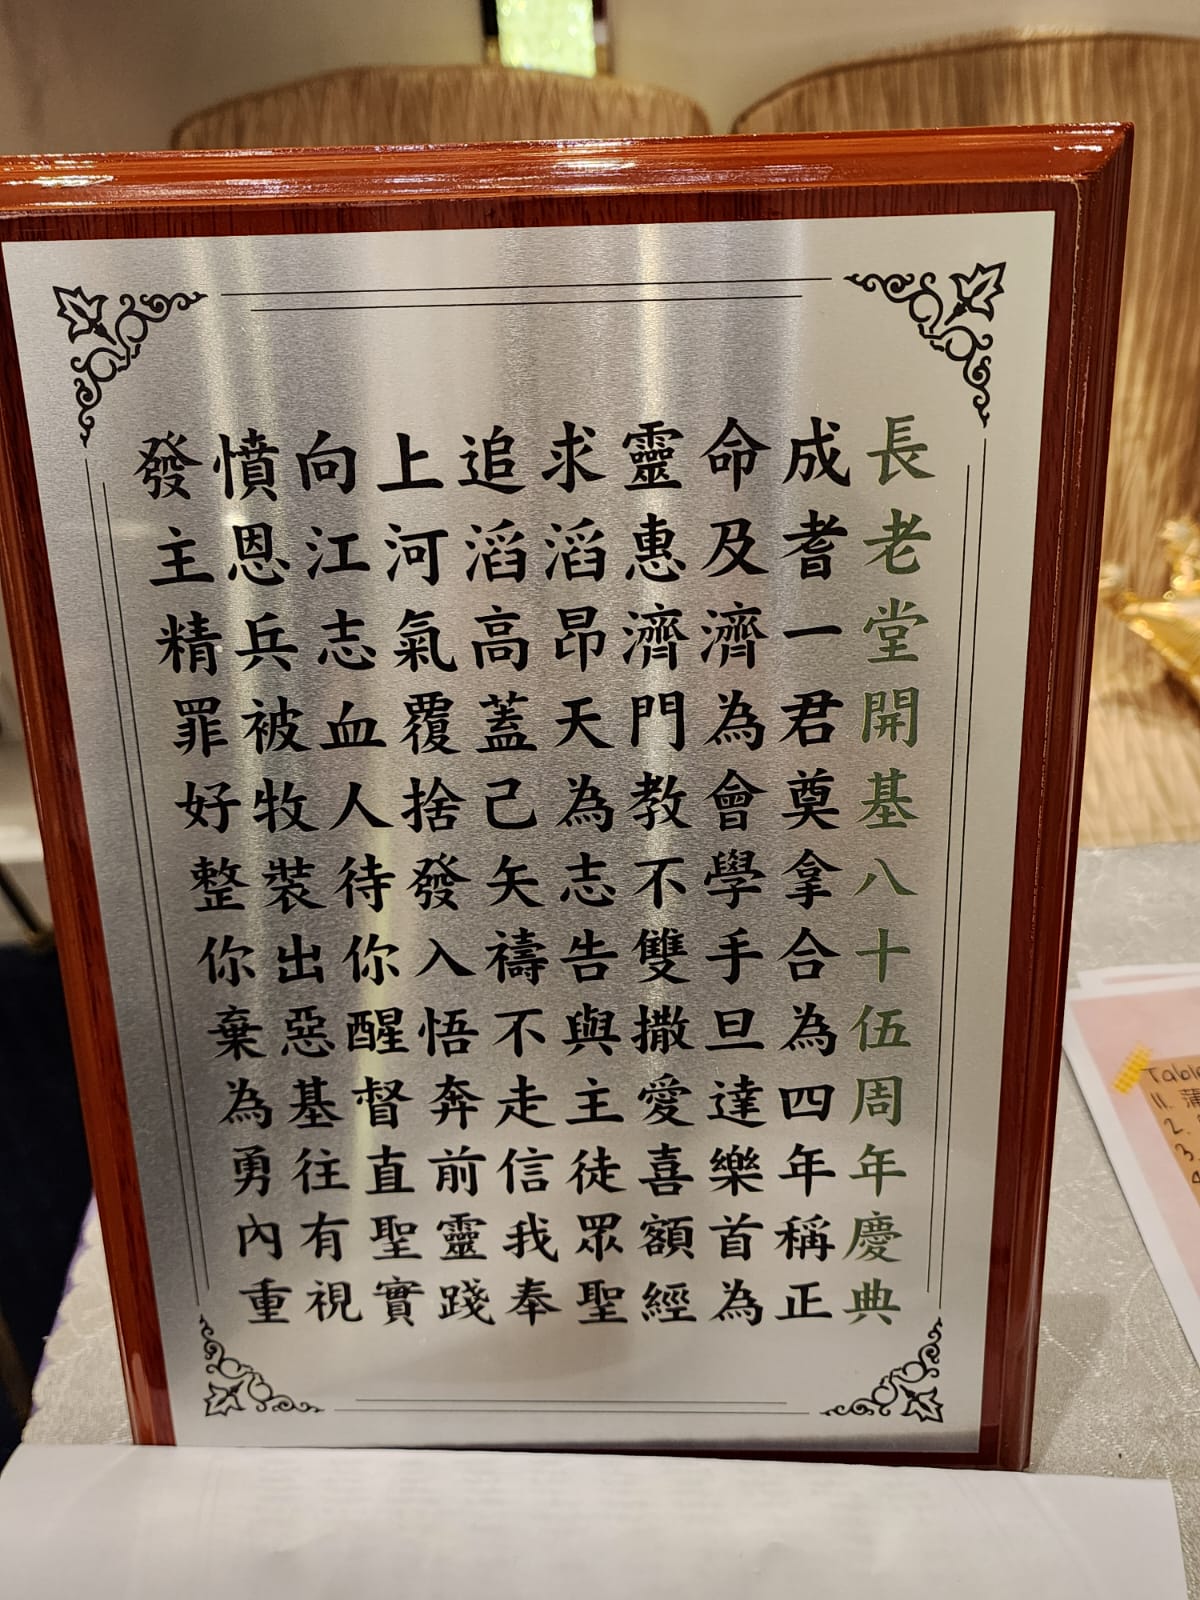 發憤向上追求靈命成長
主恩江河滔滔惠及耆老
精兵志氣高昂濟濟一堂
罪被血覆蓋天門為君開
好牧人捨己為教會奠基
整裝待發矢志不學拿八
你出你入禱告雙手合十
棄惡醒悟不與撒旦為伍
為基督奔走主愛達四周
勇往直前信徒喜樂年年
內有聖靈我眾額首稱慶
重視實踐奉聖經為正典
Table
11. 蒲
2.
3.